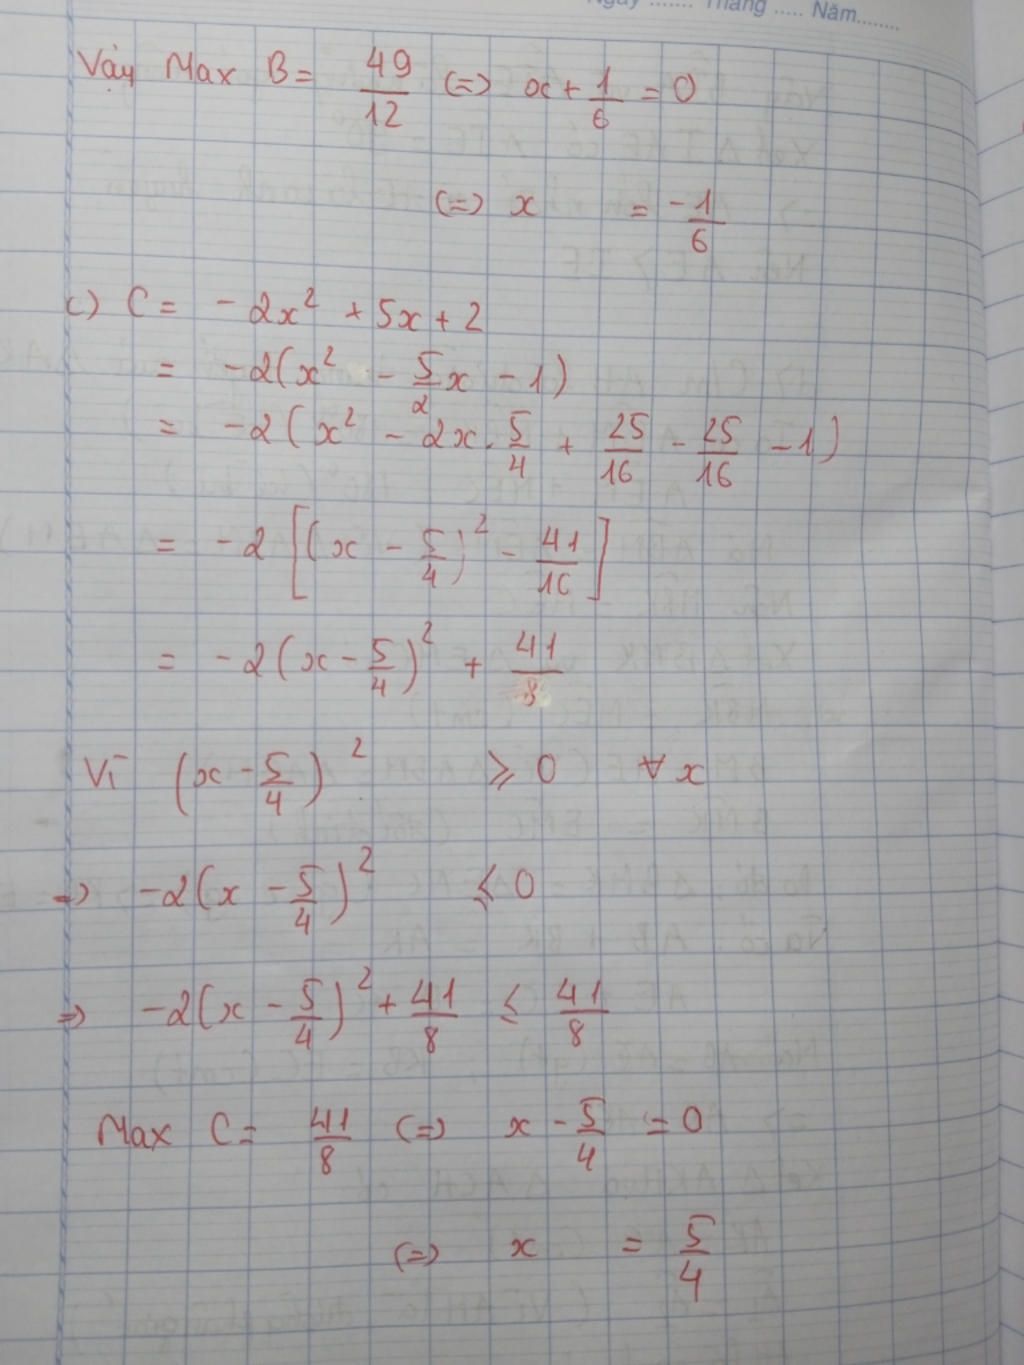 Ngày ....... Tháng ..... Năm........
Vậy Max B = 49/12 (=) x + 1/6 = 0
(=) x = -1/6
c) C = -2x² + 5x + 2
= -2(x² - 5/2 x - 1)
= -2(x² - 2x . 5/4 + 25/16 - 25/16 - 1)
= -2[(x - 5/4)² - 41/16]
= -2(x - 5/4)² + 41/8
Vì (x - 5/4)² ⩾ 0 ∀ x
=) -2(x - 5/4)² ⩽ 0
=) -2(x - 5/4)² + 41/8 ≤ 41/8
Max C = 41/8 (=) x - 5/4 = 0
(=) x = 5/4